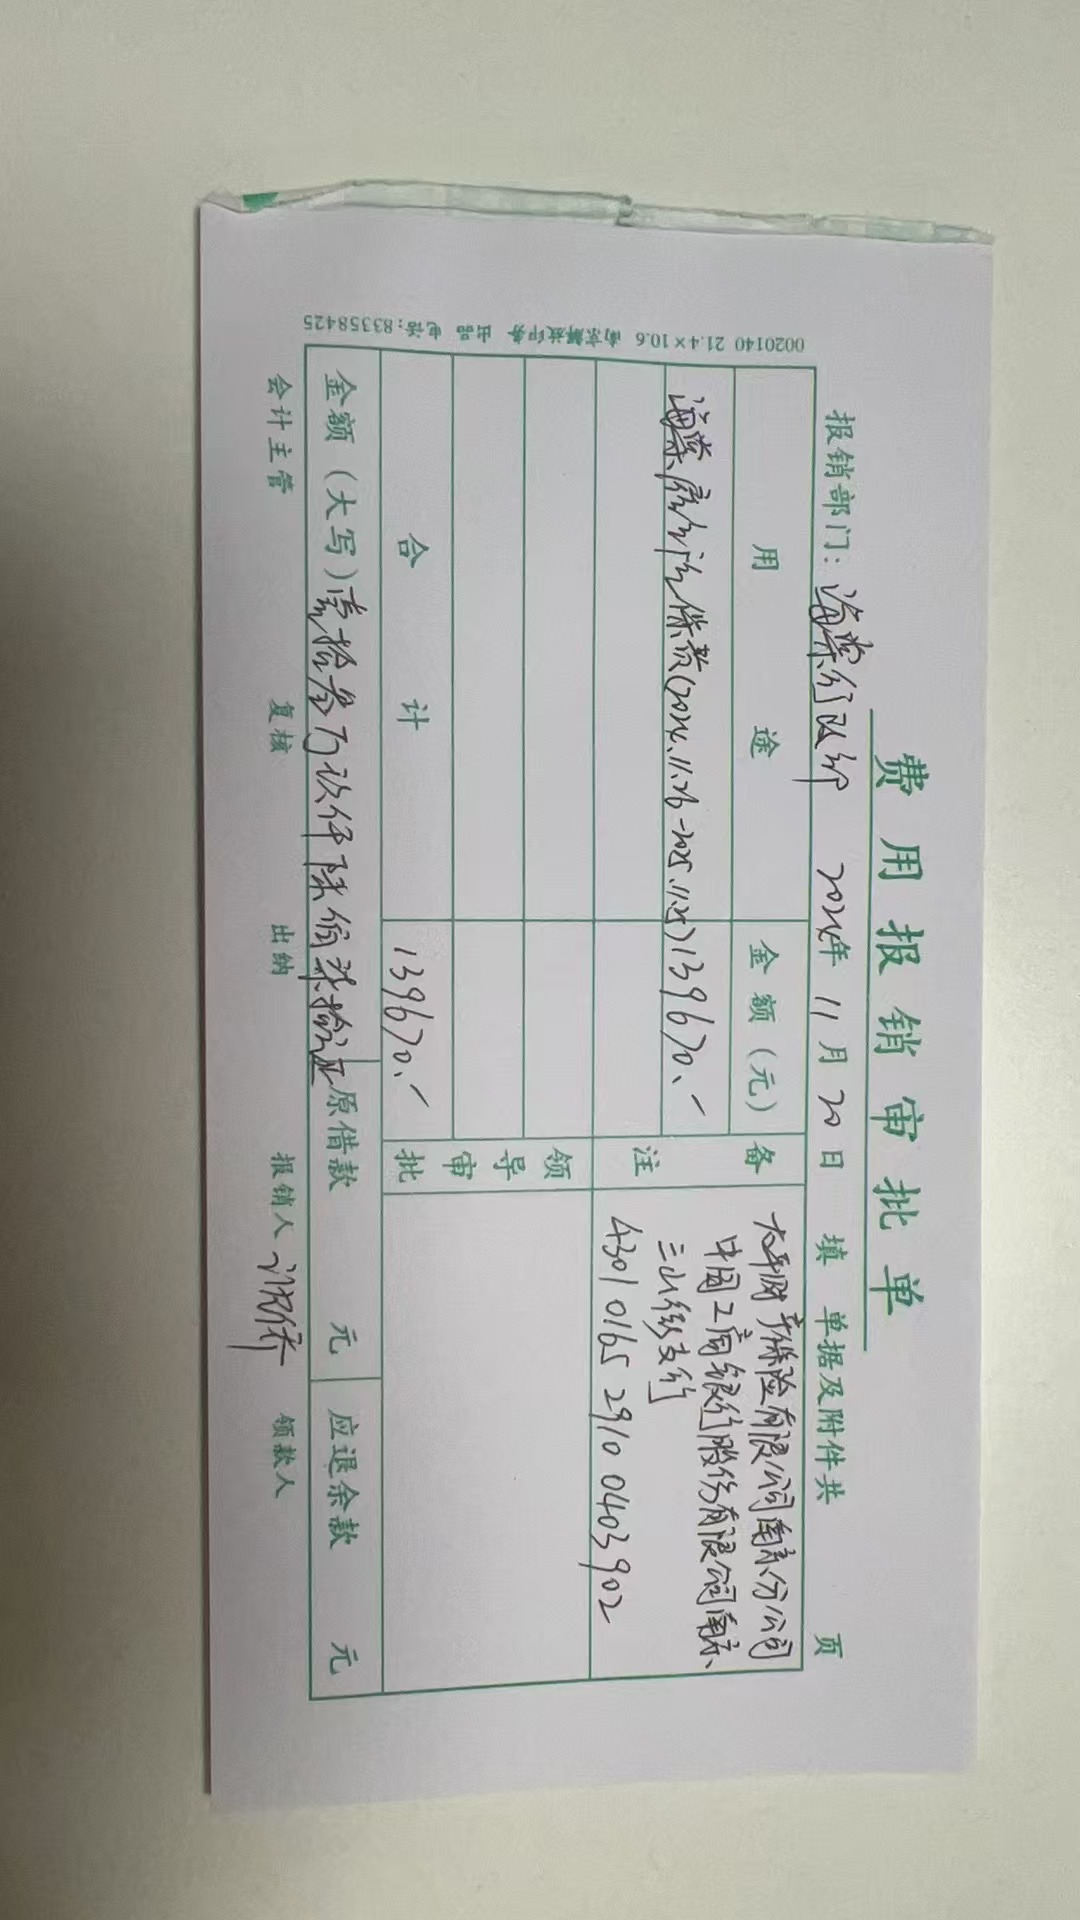 费用报销审批单
报销部门：海棠行政部 2024年 11月 20日 填 单据及附件共 页
用途 金额（元） 备注
海棠 保费(2024.11.26-2025.11.25) 139670.-
太平财产保险有限公司南京分公司
中国工商银行股份有限公司南京
三山街支行
4301 0165 2910 0403902
领导审批
合计 139670.-
金额（大写）壹拾叁万玖仟陆佰柒拾元正 原借款 元 应退余款 元
会计主管 复核 出纳 报销人 领款人
0020140 21.4×10.6 南京解放印务 出品 电话:83358425